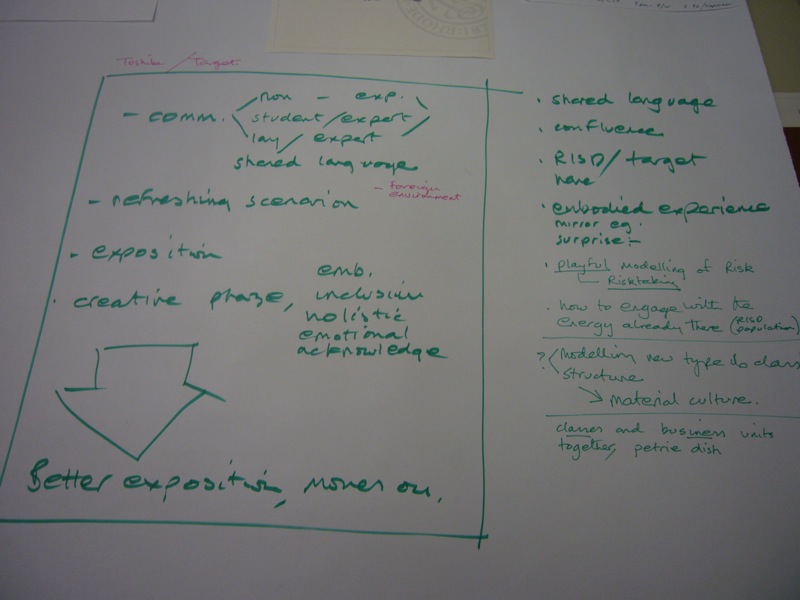 Toshiba / Target
- comm. non - exp.
student / expert
lay / expert
shared language
- refreshing scenarion
- Foreign
environment
- exposition
· creative phase, emb.
inclusion
holistic
emotional
acknowledge
Better exposition, moves on.
· shared language
· confluence
· RISD / target
· embodied experience
mirror eg.
surprise!-
· playful modelling of Risk
Risktaking
· how to engage with the
energy already there (RISD
population)
? modelling new type class
structure
→ material culture.
classes and business units
together, petrie dish